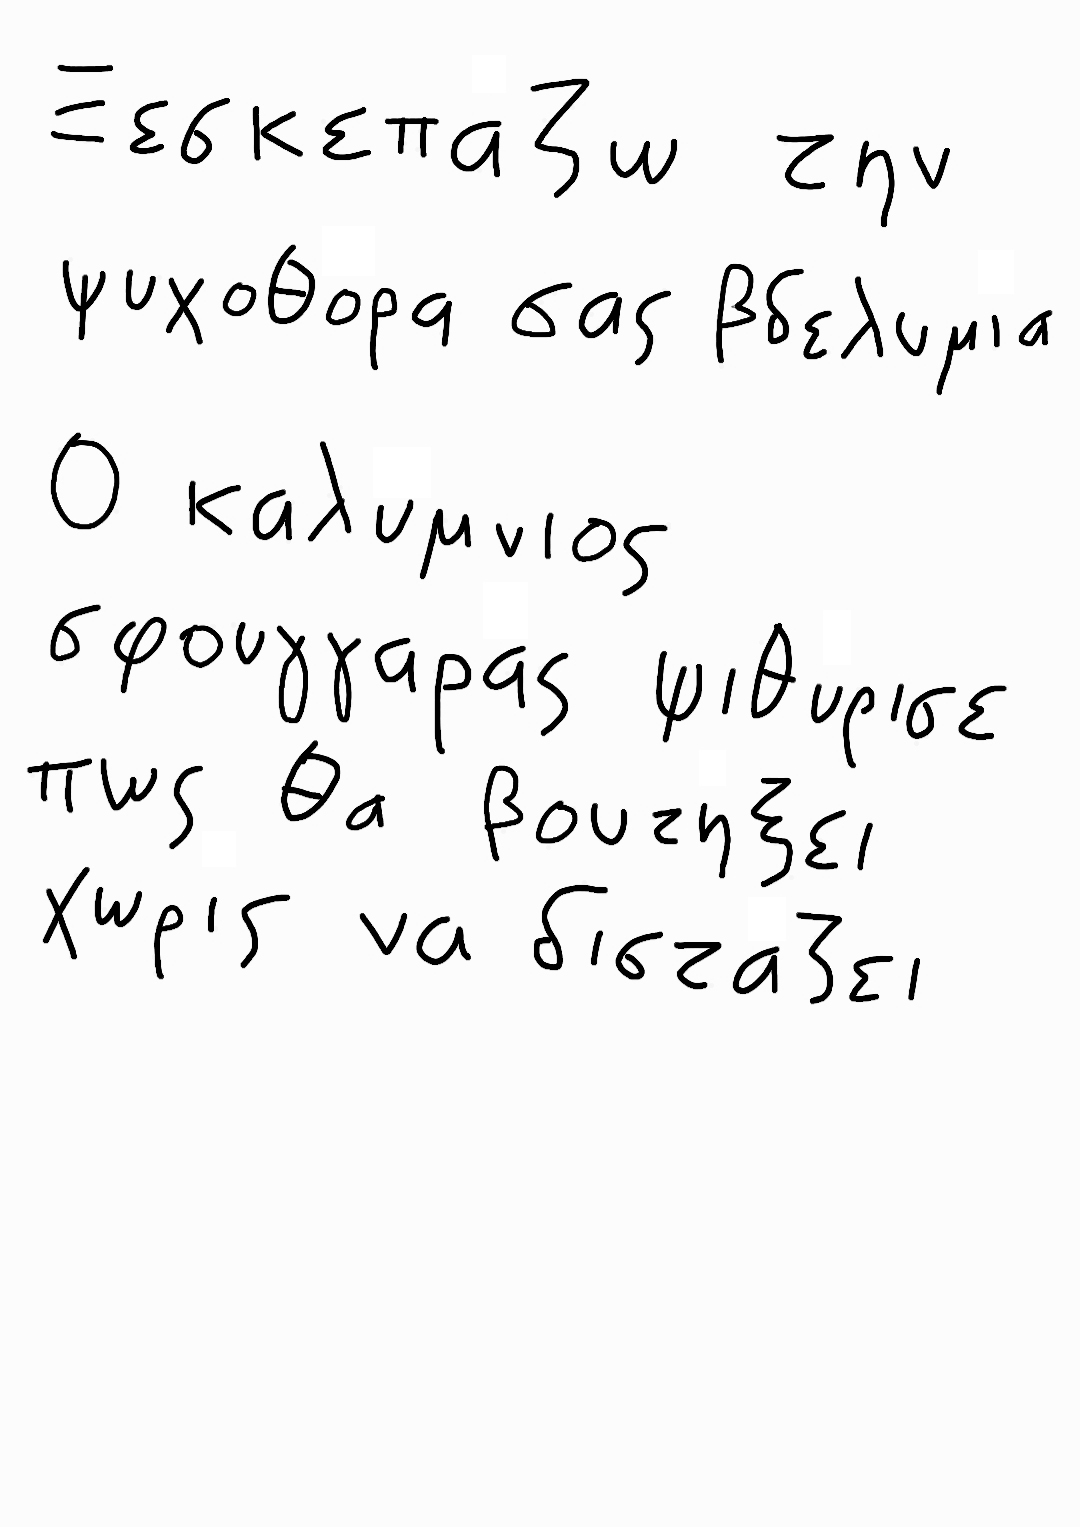 Ξεσκεπαζω την
ψυχοθορα σας βδελυμια
Ο καλυμνιος
σφουγγαρας ψιθυρισε
πως θα βουτηξει
χωρις να δισταζει